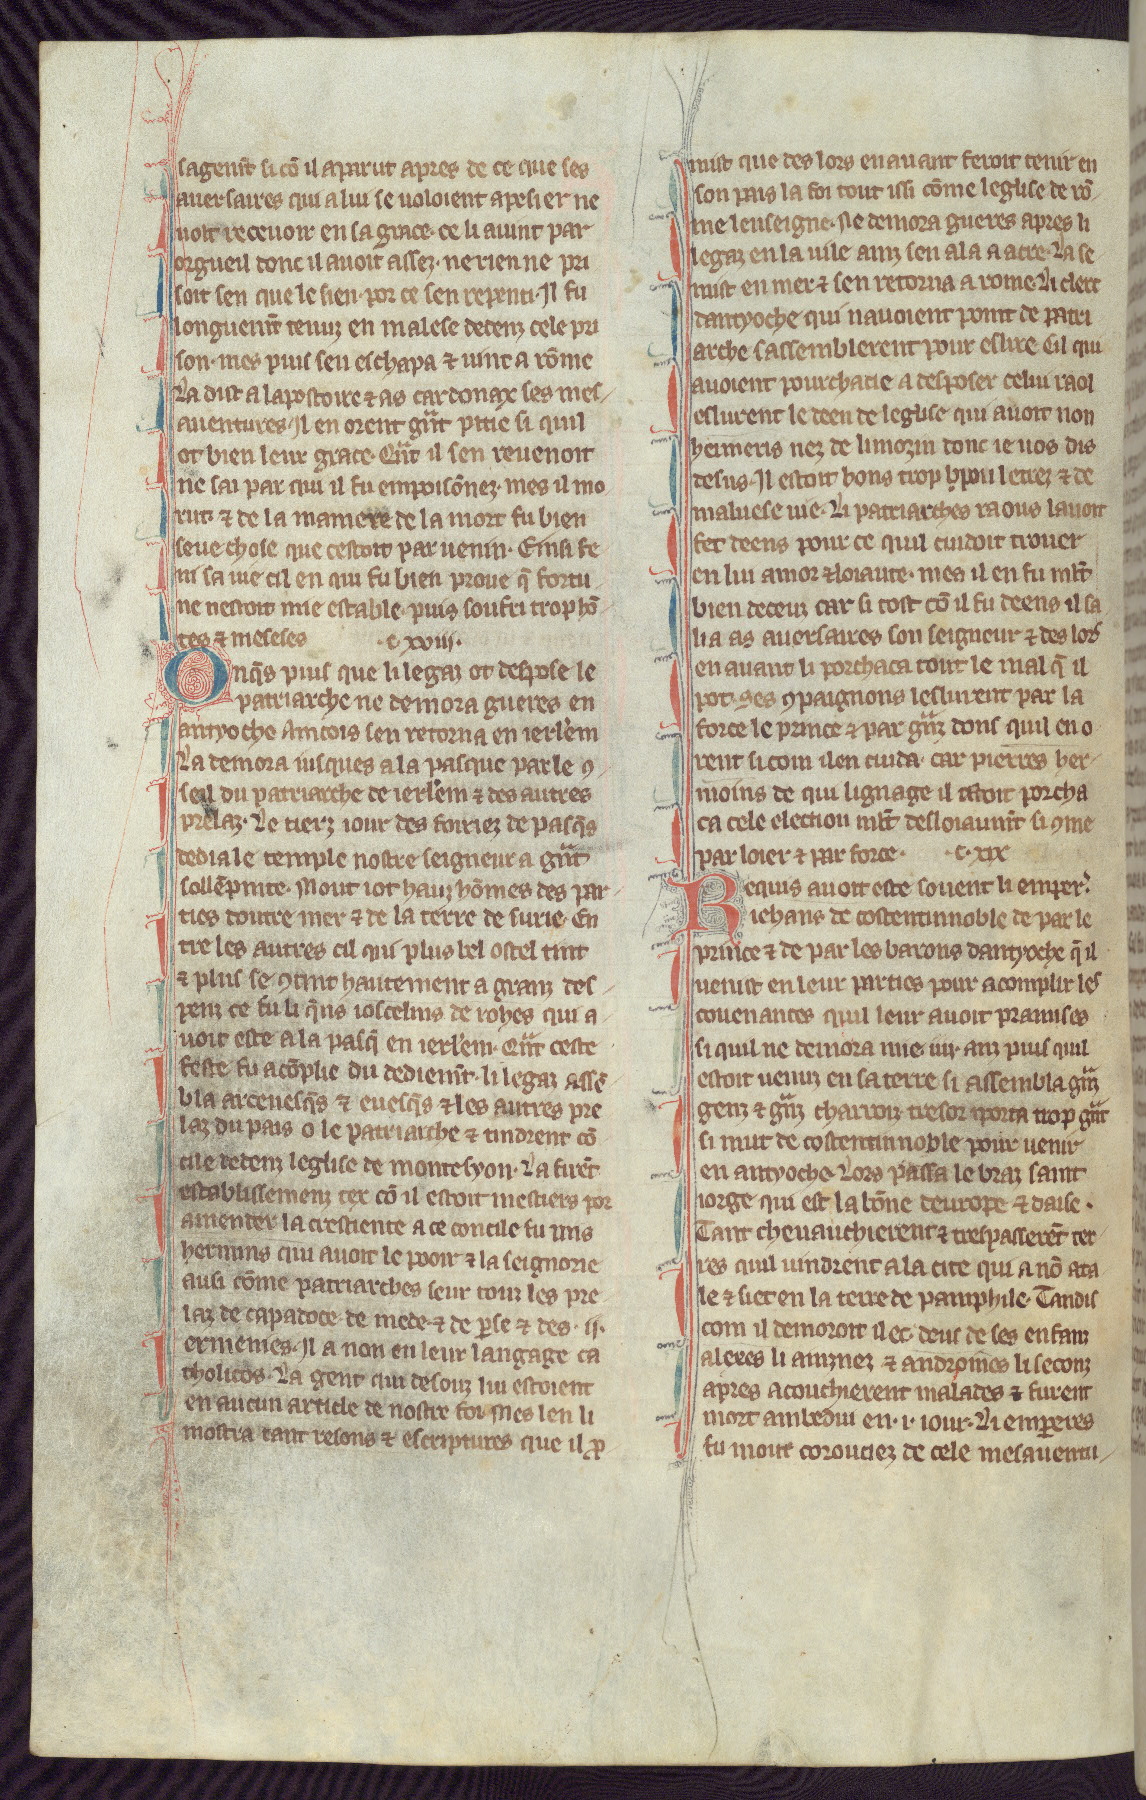 sagem̃t si cõ il aparut apres de ce que ses
auersaires qui a lui se uoloient apesier ne
uolt receuoir en sa grace. ce li auint par
orgueil donc il auoit assez. ne rien ne pri
soit sen que le sien. por ce sen repenti. Il fu
longuem̃t tenuz en malese dedenz cele pri
son. mes puis sen eschapa ⁊ uint a rõme
La dist a lapostoire ⁊ as cardonax ses mes
auentures. Il en orent gñt pitie si quil
ot bien leur grace. Qñt il sen reuenoit
ne sai par qui il fu empoisõnez. mes il mo
rut. ⁊ de la maniere de la mort fu bien
seue chose que cestoit par uenin. Einsi fe
ni sa uie cil en qui fu bien proue q̃ fortu
ne nestoit mie estable. puis soufri trop hõ
tes ⁊ meseses .c. xviii.
Onq̃s puis que li legaz ot despose le
patriarche ne demora gueres en
antyoche Aincois sen retorna en ierl'em
La demora iusques a la pasque par le ꝯ
seil du patriarche de ierl'em ⁊ des autres
prelaz. Le tierz iour des foiriez de pasq̃s
dedia le temple nostre seigneur a gñt
sollẽpnite. Mout iot hauz hõmes des par
ties doutre mer ⁊ de la terre de surie. En
tre les autres cil qui plus bel ostel tint
⁊ plus se ꝯtint hautement a granz des
penz ce fu li q̃ns ioscelins de rohes qui a
uoit este a la pasq̃ en ierl'em. Qñt ceste
feste fu acõplie du dediem̃t. li legaz assẽ
bla arceuesq̃s ⁊ euesq̃s ⁊ les autres pre
laz du pais o le patriarche ⁊ tindrent cõ
cile dedenz leglise de montesyon. La firẽt
establissemenz tex cõ il estoit mestiers por
amender la crestiente a ce concile fu uns
hermins qui auoit le pooir ⁊ la seignorie
ausi cõme patriarches seur touz les pre
laz de capadoce de mede. ⁊ de p̱se ⁊ des .ii.
ermenies. Il a non en leur langage ca
tholicos. La gent qui desouz lui estoient
en aucun article de nostre foi Mes len li
mostra tant resons ⁊ escriptures que il ꝓ
mist que des lors en auant feroit tenir en
son pais la foi tout issi cõme leglise de rõ
me lenseigne. Ne demora gueres apres li
legaz en la uile ainz sen ala a acre. La se
mist en mer ⁊ sen retorna a rome. Li clerc
dantyoche qui nauoient point de patri
arche sassemblerent pour eslire. Cil qui
auoient pourchacie a desposer celui raol
eslurent le deen de leglise qui auoit non
heimeris nez de limozin donc ie uos dis
desus. Il estoit bons trop ḥp̣ou letrez ⁊ de
maluese uie. Li patriarches raous lauoit
fet deens pour ce quil cuidoit trouer
en lui amor ⁊ loiaute. mes il en fu ml't
bien deceuz car si tost cõ il fu deens il sa
lia as auersaires son seigneur ⁊ des lors
en auant li porchaca tout le mal q̃ il
pot. Ses ꝯpaignons leslurent par la
force le prince ⁊ par g̃nz dons quil en o
rent si com ilen cuida. car pierres her
moins de qui lignage il estoit porcha
ca cele election ml't desloiaum̃t si ꝯme
par loier ⁊ par force. .c. xix
Requis auoit este souent li emper̃.
iehans de costentinnoble de par le
prince ⁊ de par les barons dantyoche q̃ il
uenist en leur parties pour acomplir les
couenantes quil leur auoit pramises
si quil ne demora mie .iiii. anz puis quil
estoit uenuz en sa terre si assembla g̃nz
genz ⁊ g̃nz charroiz tresor iporta trop gñt
si mut de costentinnoble pour uenir
en antyoche. Lors passa le braz saint
iorge qui est la bõne deurope ⁊ daise.
Tant cheuauchierent ⁊ trespasserẽt ter
res quil uindrent a la cite qui a nõ ata
le ⁊ siet en la terre de pamphile. Tandis
com il demoroit ilec deus de ses enfanz
alexes li ainznez ⁊ andromes li seconz
apres acouchierent malades ⁊ furent
mort ambedui en .i. iour. Li emp̱eres
fu mout corouciez de cele mesauentu